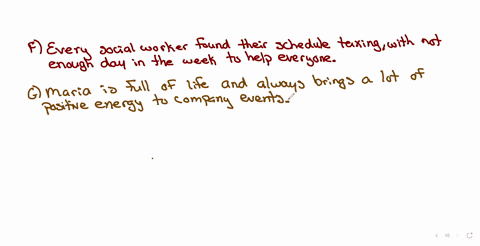 F) Every social worker found their schedule taxing, with not
enough day in the week to help everyone.
G) Maria is full of life and always brings a lot of
positive energy to company events.